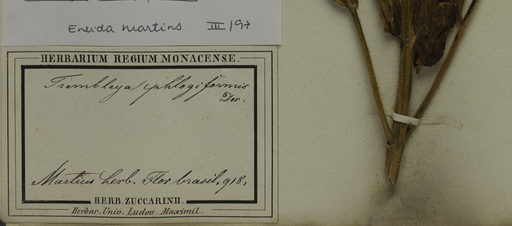 Eneida Martins III/97
HERBARIUM REGIUM MONACENSE.
Trembleya phlogiformis
Dec.
Martius herb. Flor. brasil. 918.
HERB. ZUCCARINII.
Herbar. Univ. Ludov. Maximil.